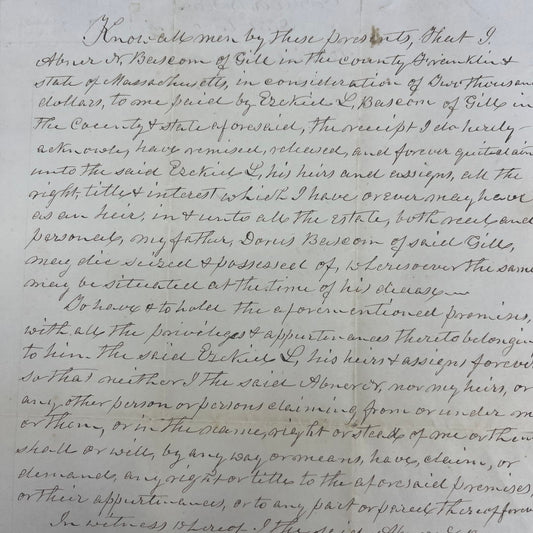 Know all men by these presents, that I.
Abner N. Bascom of Gill in the county Franklin &
state of Massachusetts, in consideration of Two thousan
dollars, to me paid by Ezekiel L. Bascom of Gill in
the County & state aforesaid, the receipt I do hereby
acknowle, have remised, released, and forever quitclaim
unto the said Ezekiel L, his heirs and assigns, all the
right, title & interest which I have or ever may have
as an heir, in & unto all the estate, both real and
personal, my father, Dorus Bascom of said Gill,
may die seized & possessed of, wheresoever the same
may be situated at the time of his decease
To have & to hold the aforementioned premises,
with all the privileges & appurtenances thereto belongin
to him the said Ezekiel L, his heirs & assigns forever
so that neither I the said Abner N, nor my heirs, or
any other person or persons claiming from or under m
or them, or in the name, right or stead of me or them
shall or will, by any way or means, have, claim, or
demand, any right or title to the aforesaid premises,
or their appurtenances, or to any part or parcel thereof forever
In witness whereof I the said